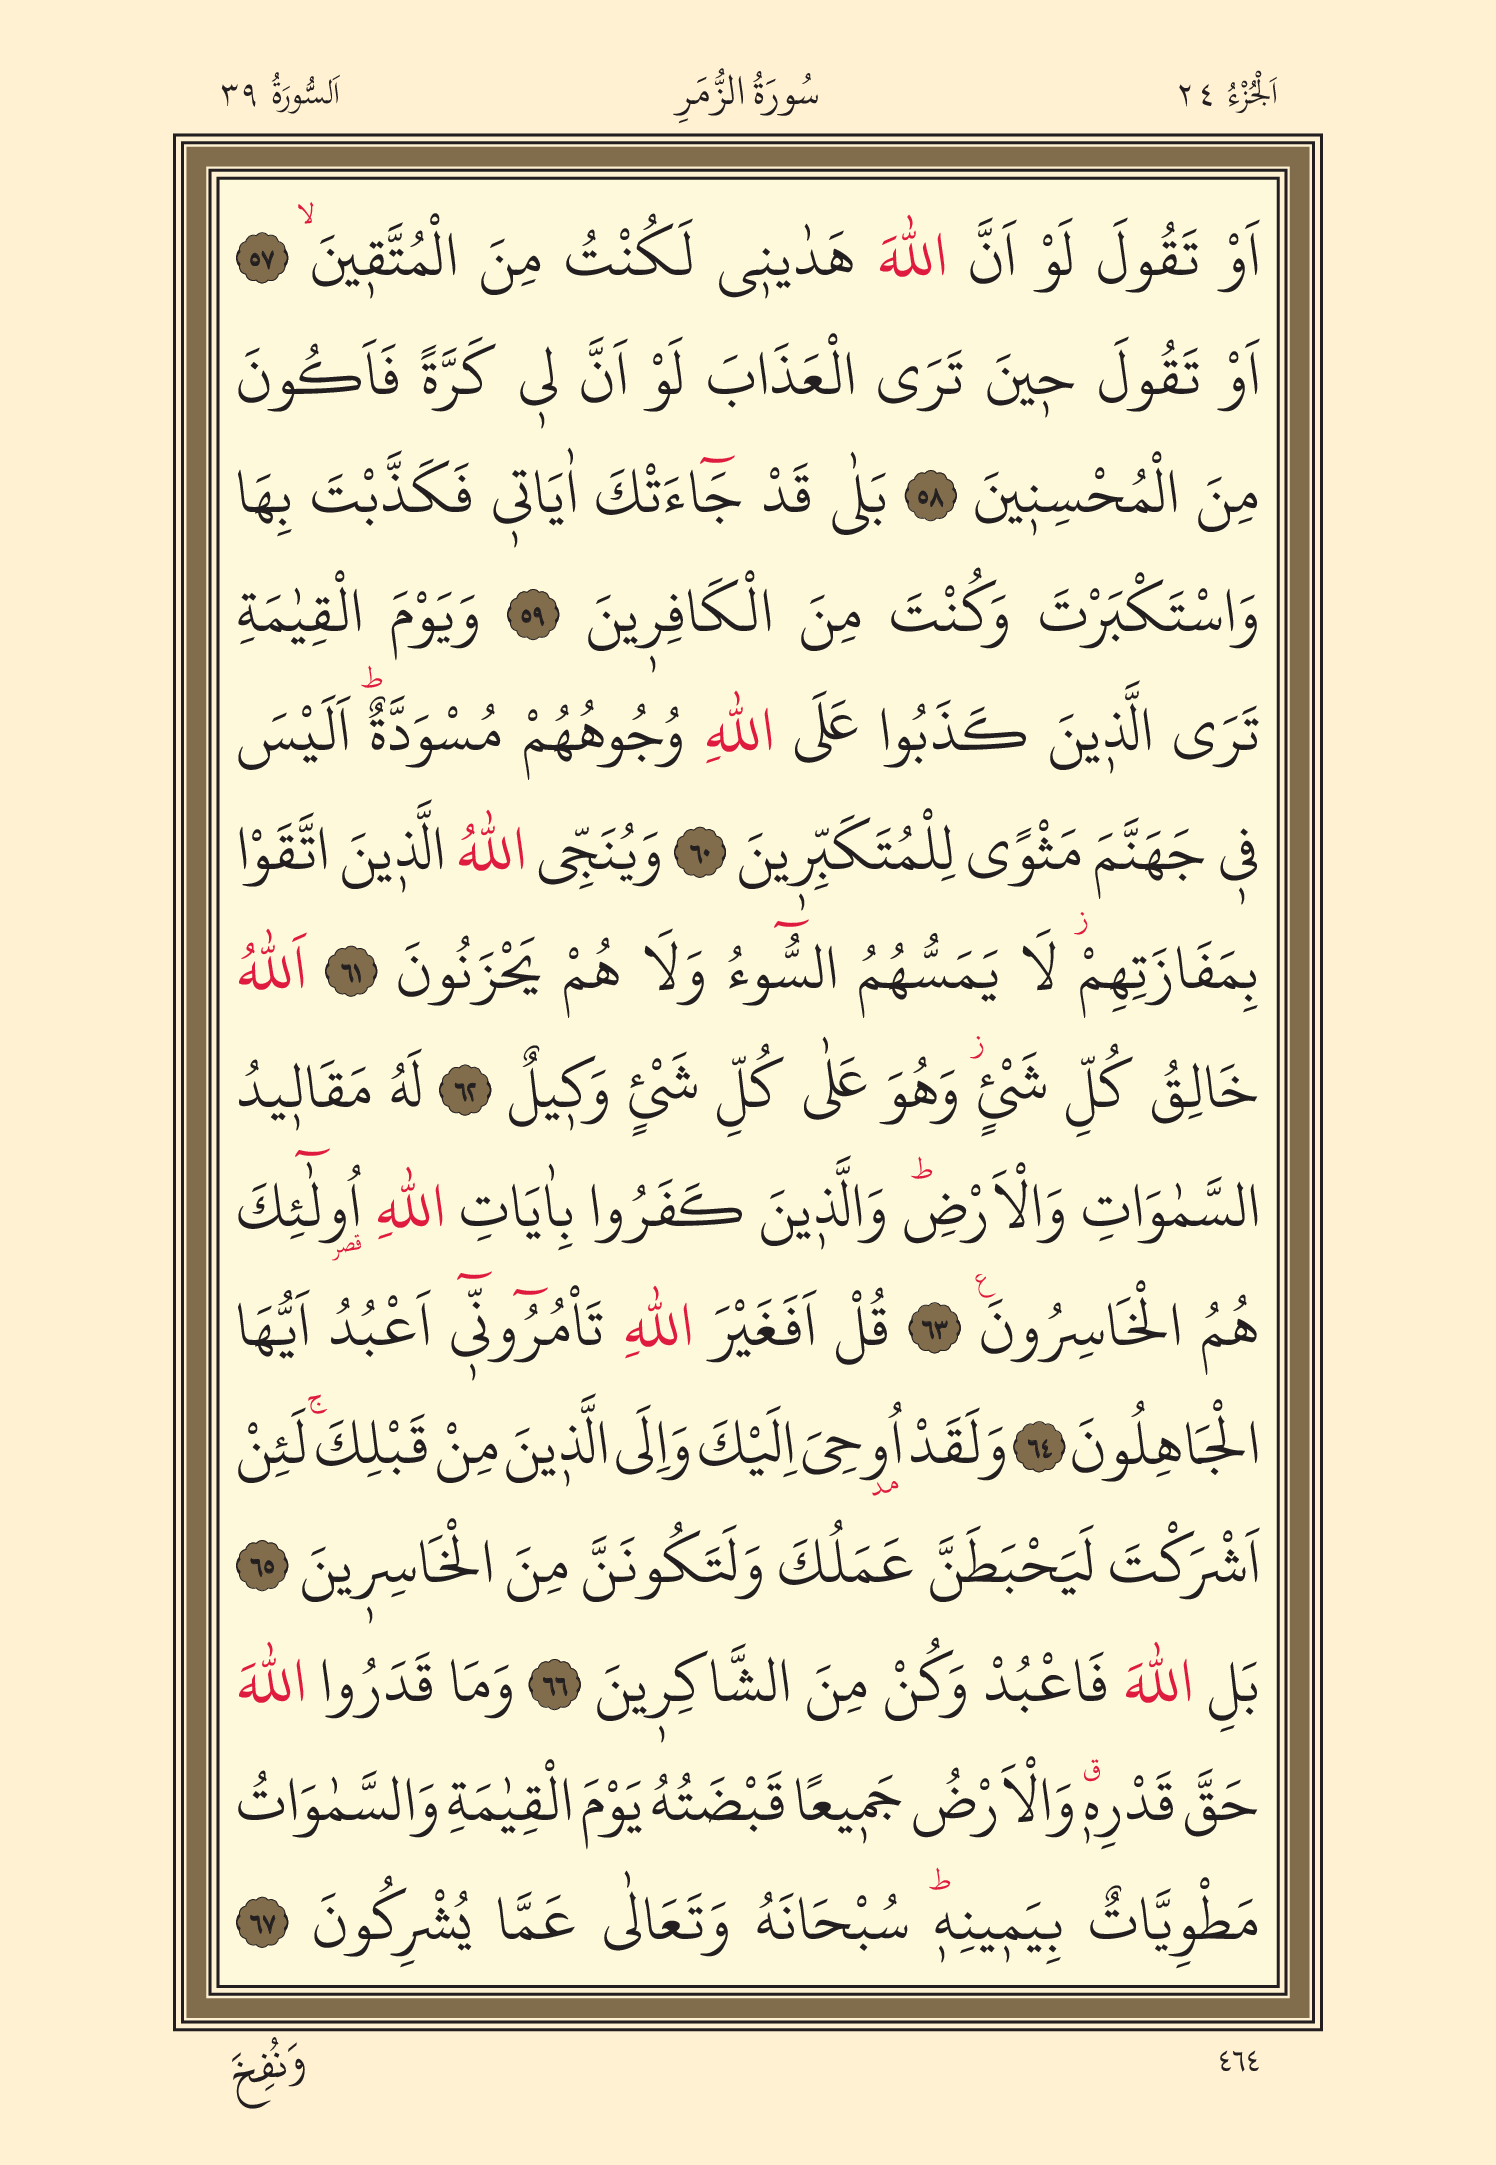 اَلْجُزْءُ ٢٤
سُورَةُ الزُّمَرِ
اَلسُّورَةُ ٣٩
اَوْ تَقُولَ لَوْ اَنَّ اللّٰهَ هَدٰين۪ى لَكُنْتُ مِنَ الْمُتَّق۪ينَۙ ٥٧
اَوْ تَقُولَ ح۪ينَ تَرَى الْعَذَابَ لَوْ اَنَّ ل۪ى كَرَّةً فَاَكُونَ
مِنَ الْمُحْسِن۪ينَ ٥٨ بَلٰى قَدْ جَٓاءَتْكَ اٰيَات۪ى فَكَذَّبْتَ بِهَا
وَاسْتَكْبَرْتَ وَكُنْتَ مِنَ الْكَافِر۪ينَ ٥٩ وَيَوْمَ الْقِيٰمَةِ
تَرَى الَّذ۪ينَ كَذَبُوا عَلَى اللّٰهِ وُجُوهُهُمْ مُسْوَدَّةٌۜ اَلَيْسَ
ف۪ى جَهَنَّمَ مَثْوًى لِلْمُتَكَبِّر۪ينَ ٦٠ وَيُنَجِّى اللّٰهُ الَّذ۪ينَ اتَّقَوْا
بِمَفَازَتِهِمْۘ لَا يَمَسُّهُمُ السُّٓوءُ وَلَا هُمْ يَحْزَنُونَ ٦١ اَللّٰهُ
خَالِقُ كُلِّ شَىْءٍۘ وَهُوَ عَلٰى كُلِّ شَىْءٍ وَك۪يلٌ ٦٢ لَهُ مَقَال۪يدُ
السَّمٰوَاتِ وَالْاَرْضِۜ وَالَّذ۪ينَ كَفَرُوا بِاٰيَاتِ اللّٰهِ اُو۬لٰٓئِكَ قصر
هُمُ الْخَاسِرُونَ۟ ع ٦٣ قُلْ اَفَغَيْرَ اللّٰهِ تَاْمُرُٓونّ۪ٓى اَعْبُدُ اَيُّهَا
الْجَاهِلُونَ ٦٤ وَلَقَدْ اُو۫حِىَ اِلَيْكَ وَاِلَى الَّذ۪ينَ مِنْ قَبْلِكَۚ لَئِنْ مد
اَشْرَكْتَ لَيَحْبَطَنَّ عَمَلُكَ وَلَتَكُونَنَّ مِنَ الْخَاسِر۪ينَ ٦٥
بَلِ اللّٰهَ فَاعْبُدْ وَكُنْ مِنَ الشَّاكِر۪ينَ ٦٦ وَمَا قَدَرُوا اللّٰهَ
حَقَّ قَدْرِه۪ۗ وَالْاَرْضُ جَم۪يعًا قَبْضَتُهُ يَوْمَ الْقِيٰمَةِ وَالسَّمٰوَاتُ
مَطْوِيَّاتٌ بِيَم۪ينِه۪ۜ سُبْحَانَهُ وَتَعَالٰى عَمَّا يُشْرِكُونَ ٦٧
٤٦٤
وَنُفِخَ